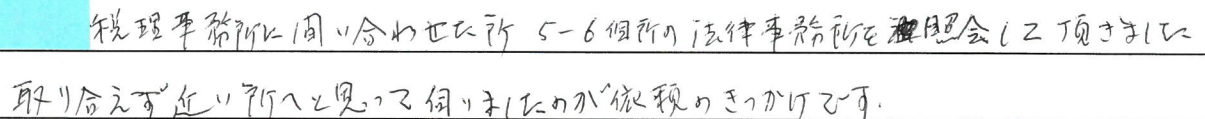 税理事務所に問い合わせた所 5-6個所の法律事務所を照会して頂きました
取り合えず近い所へと思って伺いましたのが依頼のきっかけです.